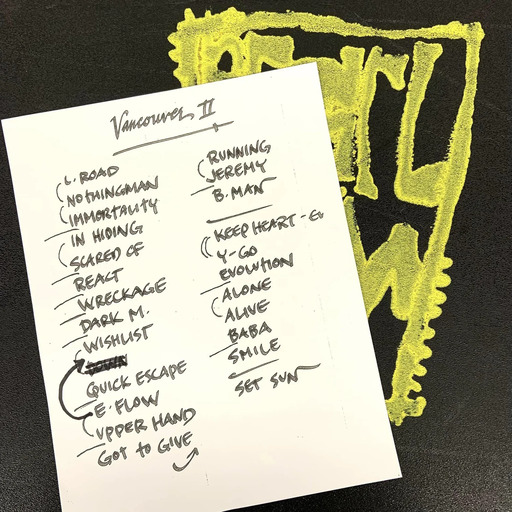 Vancouver II
L. ROAD
NOTHINGMAN
IMMORTALITY
IN HIDING
SCARED OF
REACT
WRECKAGE
DARK M.
WISHLIST
DOWN
QUICK ESCAPE
E. FLOW
UPPER HAND
GOT TO GIVE
RUNNING
JEREMY
B. MAN
KEEP HEART - Ev
Y-GO
EVOLUTION
ALONE
ALIVE
BABA
SMILE
SET SUN
PEARL